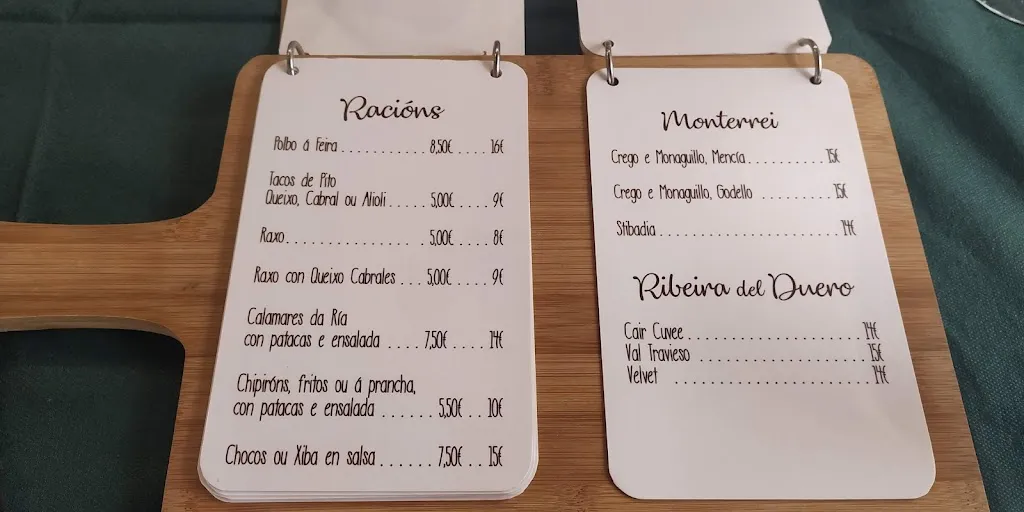 Racións
Polbo á Feira ........... 8,50€ ..... 16€
Tacos de Pito
Queixo, Cabral ou Alioli ..... 5,00€ ..... 9€
Raxo .................. 5,00€ ..... 8€
Raxo con Queixo Cabrales .... 5,00€ .... 9€
Calamares da Ría
con patacas e ensalada ..... 7,50€ .... 14€
Chipiróns, fritos ou á prancha,
con patacas e ensalada ...... 5,50€ .. 10€
Chocos ou Xiba en salsa ........ 7,50€ .. 15€
Monterrei
Crego e Monaguillo, Mencía .......... 15€
Crego e Monaguillo, Godello ......... 15€
Stibadia ....................... 14€
Ribeira del Duero
Cair Cuvee ....................... 14€
Val Travieso ..................... 15€
Velvet ......................... 14€